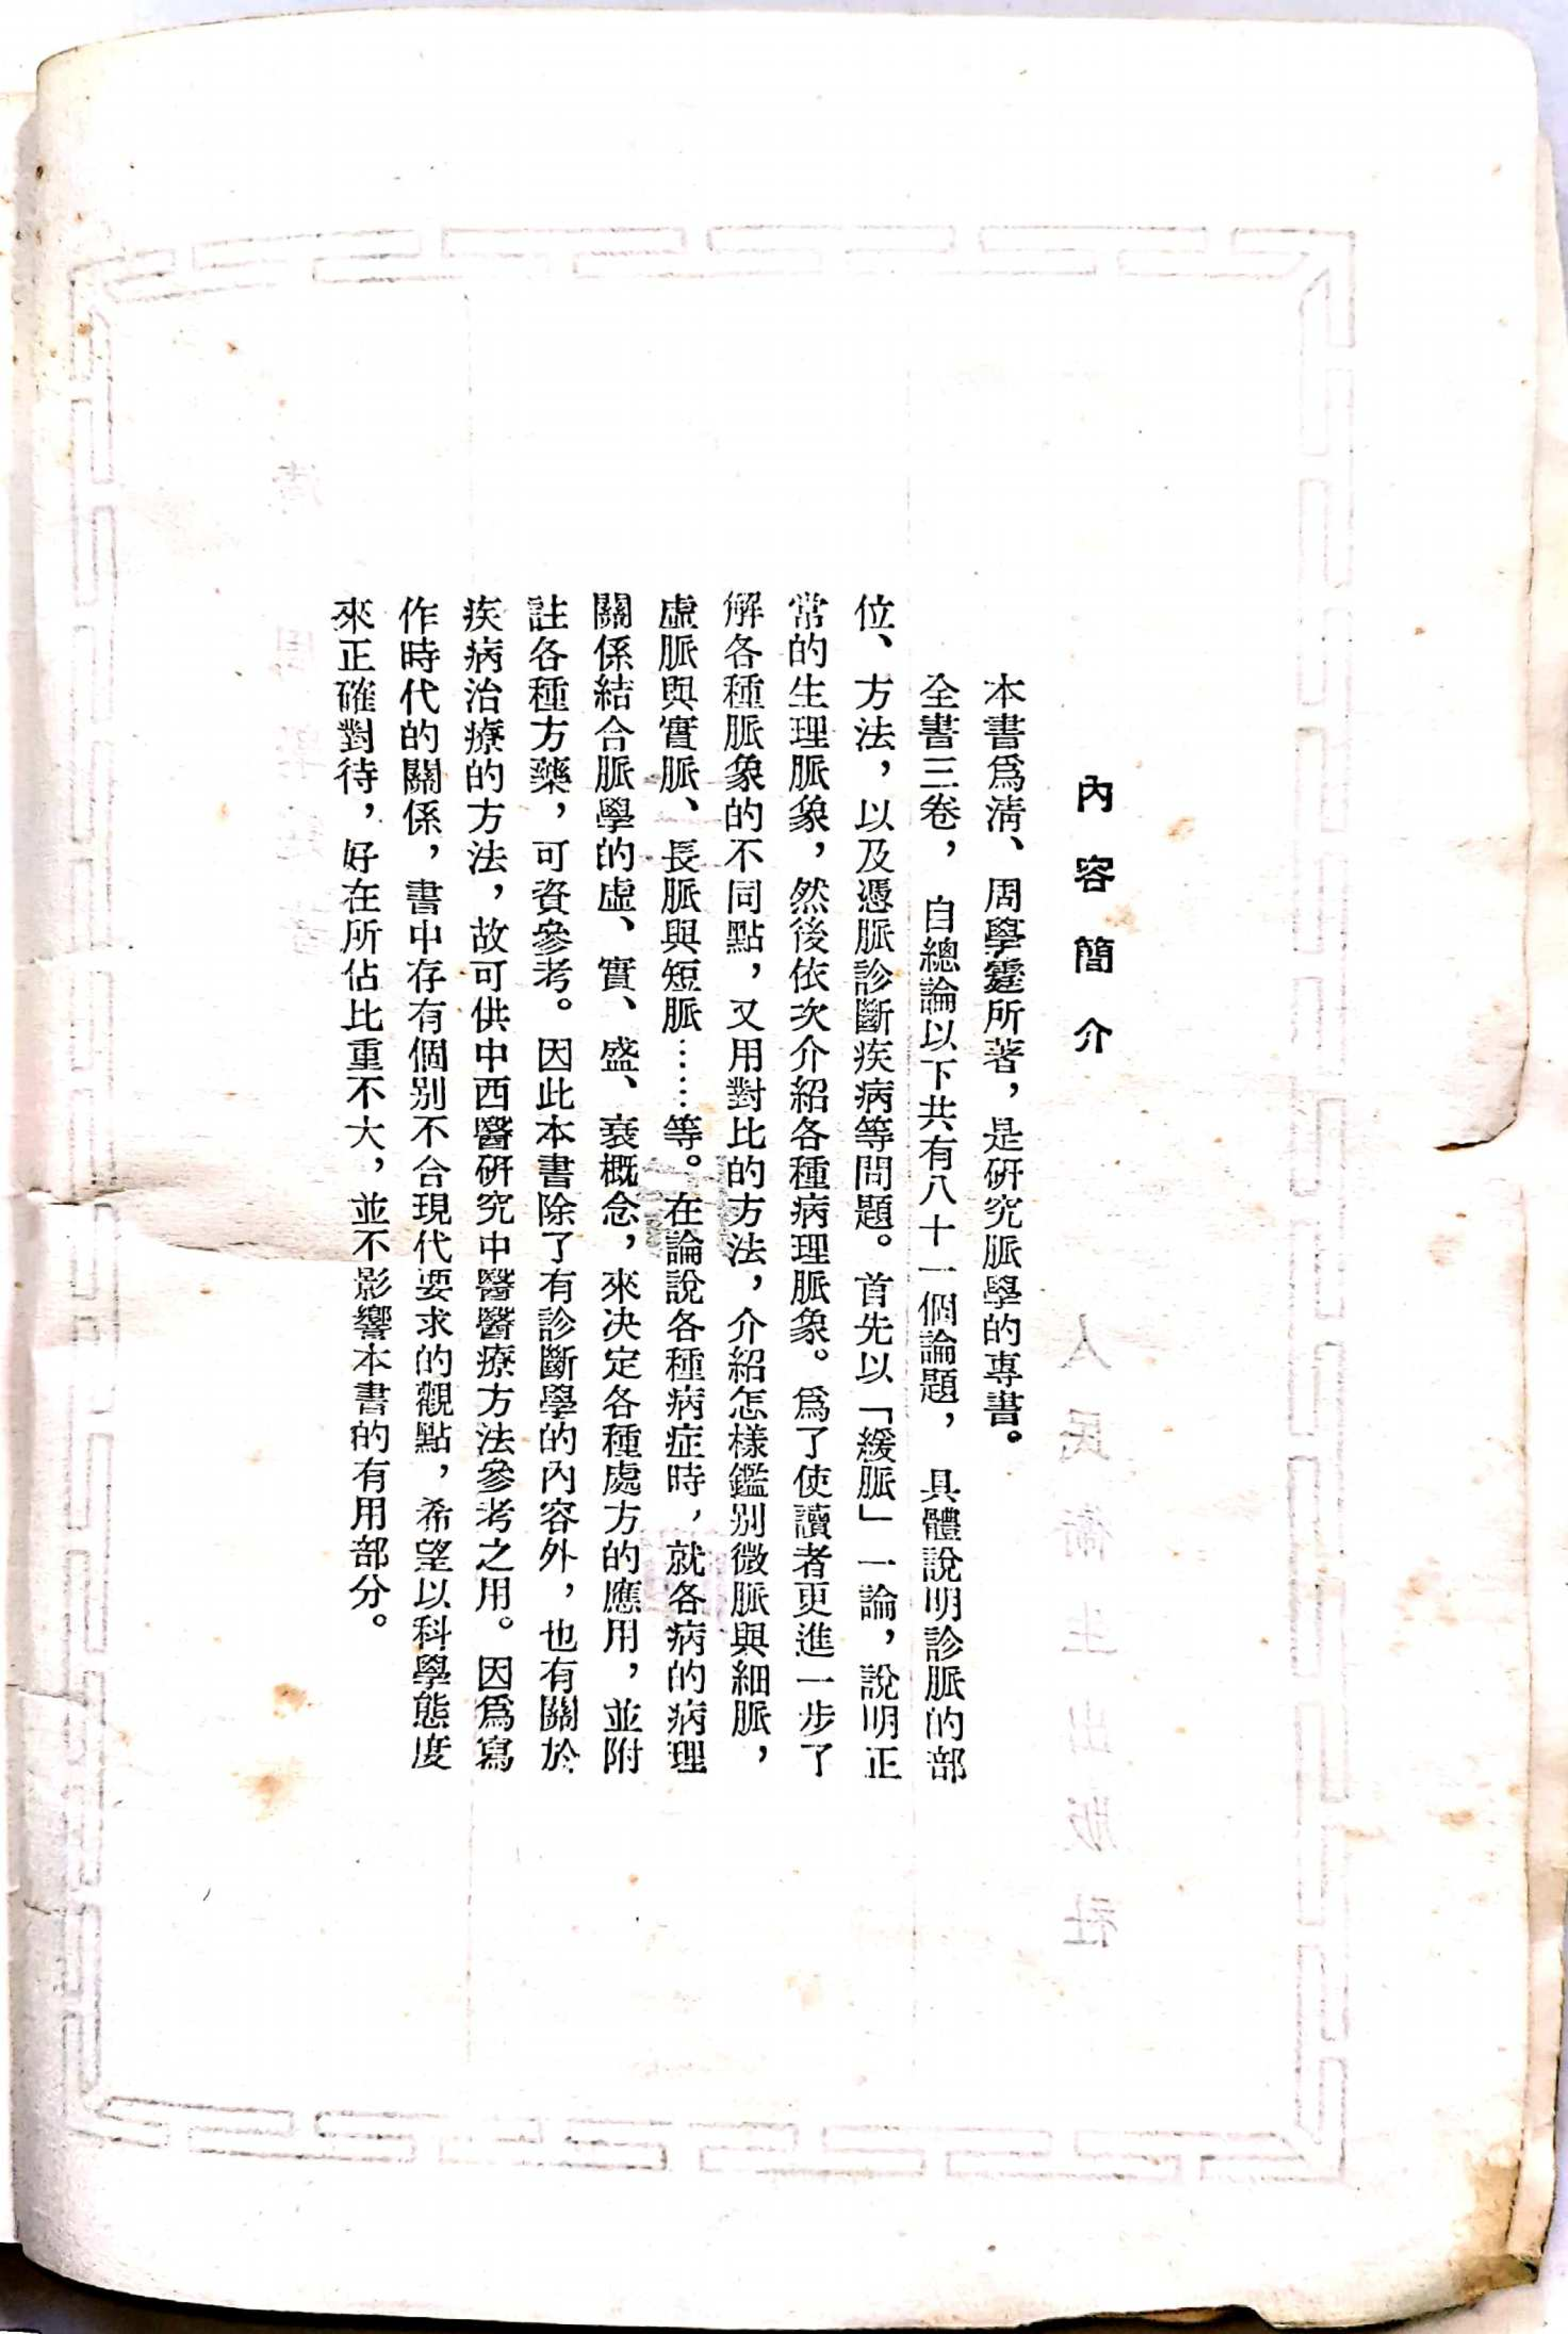 內容簡介
本書爲清、周學霆所著，是研究脈學的專書。
全書三卷，自總論以下共有八十一個論題，具體說明診脈的部
位、方法，以及憑脈診斷疾病等問題。首先以「緩脈」一論，說明正
常的生理脈象，然後依次介紹各種病理脈象。爲了使讀者更進一步了
解各種脈象的不同點，又用對比的方法，介紹怎樣鑑别微脈與細脈，
虛脈與實脈、長脈與短脈……等。在論說各種病症時，就各病的病理
關係結合脈學的虛、實、盛、衰概念，來决定各種處方的應用，並附
註各種方藥，可資參考。因此本書除了有診斷學的內容外，也有關於
疾病治療的方法，故可供中西醫研究中醫醫療方法參考之用。因爲寫
作時代的關係，書中存有個别不合現代要求的觀點，希望以科學態度
來正確對待，好在所佔比重不大，並不影響本書的有用部分。
人民衞生出版社